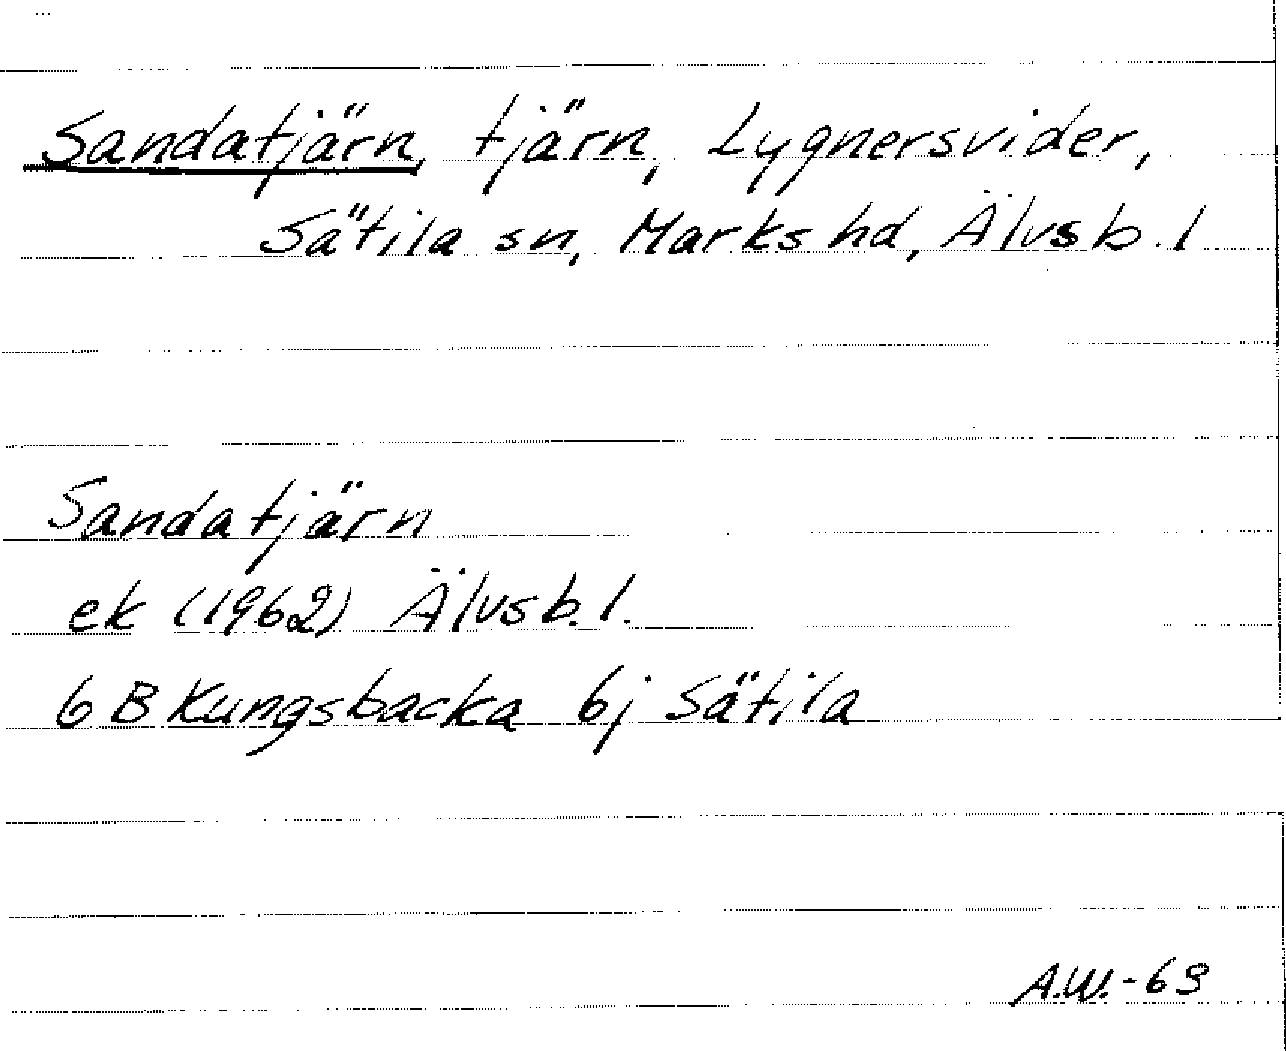 Sandatjärn, tjärn, Lygnersvider,
Sätila sn, Marks hd, Älvsb. l
Sandatjärn
ek (1962) Älvsb. l.
6 B Kungsbacka 6j Sätila
A.W.-63